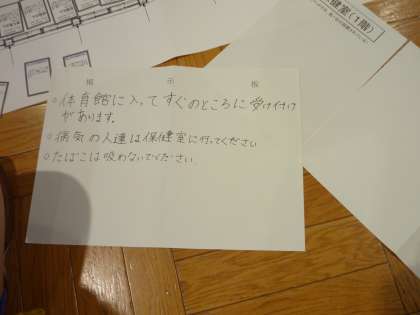 掲 示 板
○体育館に入ってすぐのところに受け付けがあります。
○病気の人達は保健室に行ってください
○たばこは吸わないでください。
健室(1階)